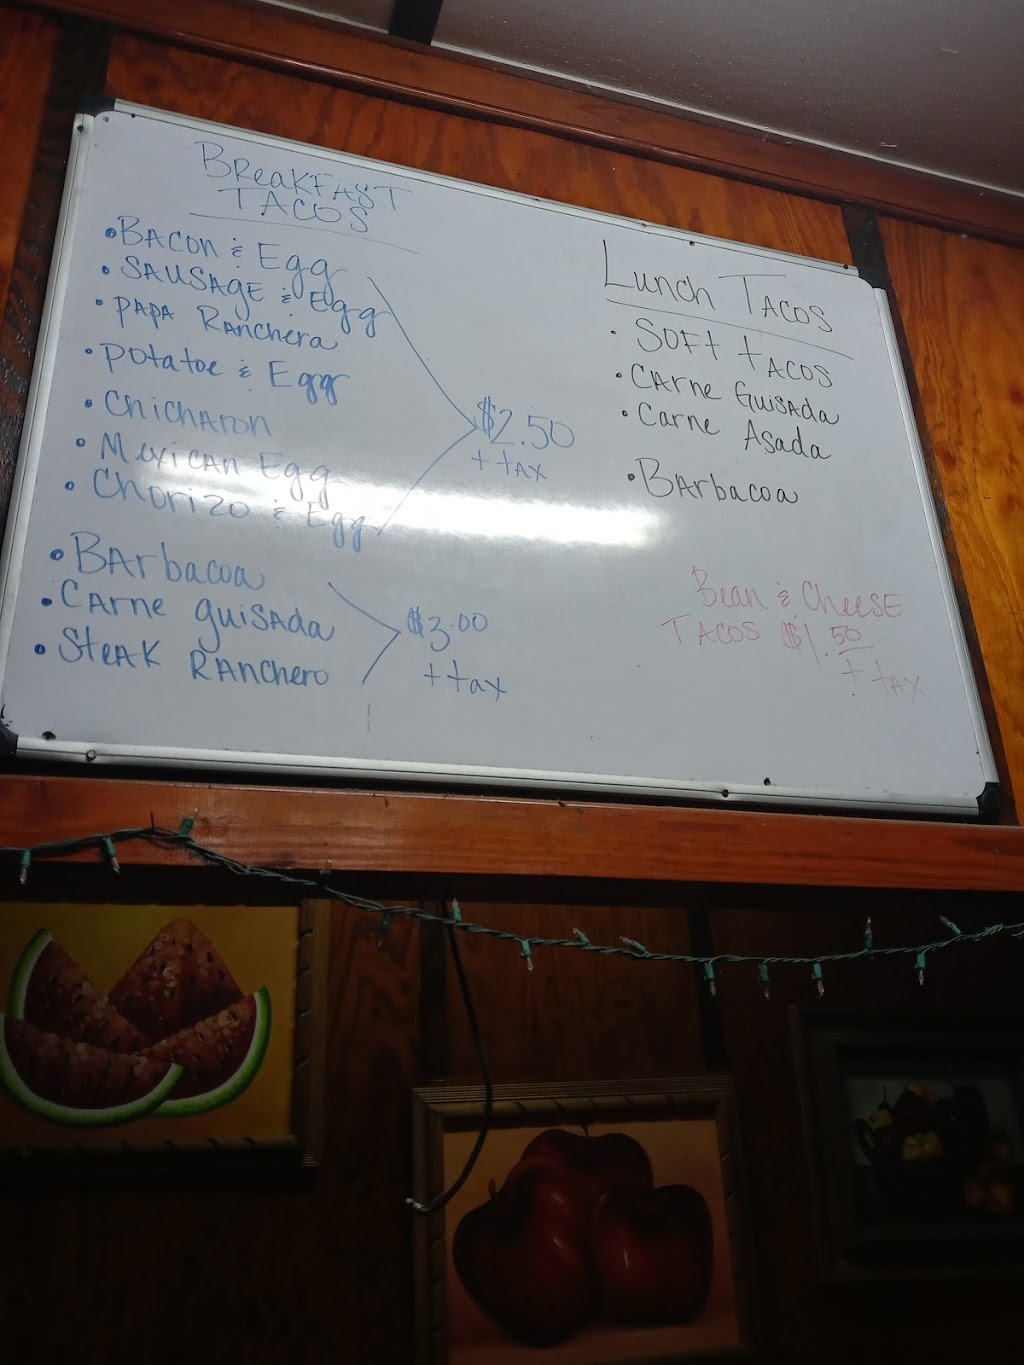 BREAKFAST
TACOS
• BACON & Egg
• SAUSAGE & Egg
• PAPA RANChERA
• POtAtOE & Egg
• ChIChARON
• MEXICAN Egg
• ChORIZO & Egg
$2.50
+ tAX
• BARbACOA
• CARNE gUISADA
• StEAK RANChERO
$3.00
+ tax
Lunch TACOS
• SOFt tACOS
• CARNE GUISADA
• CARNE ASADA
• BARbACOA
Bean & CHEESE
TACOS $1.50
+ tAX